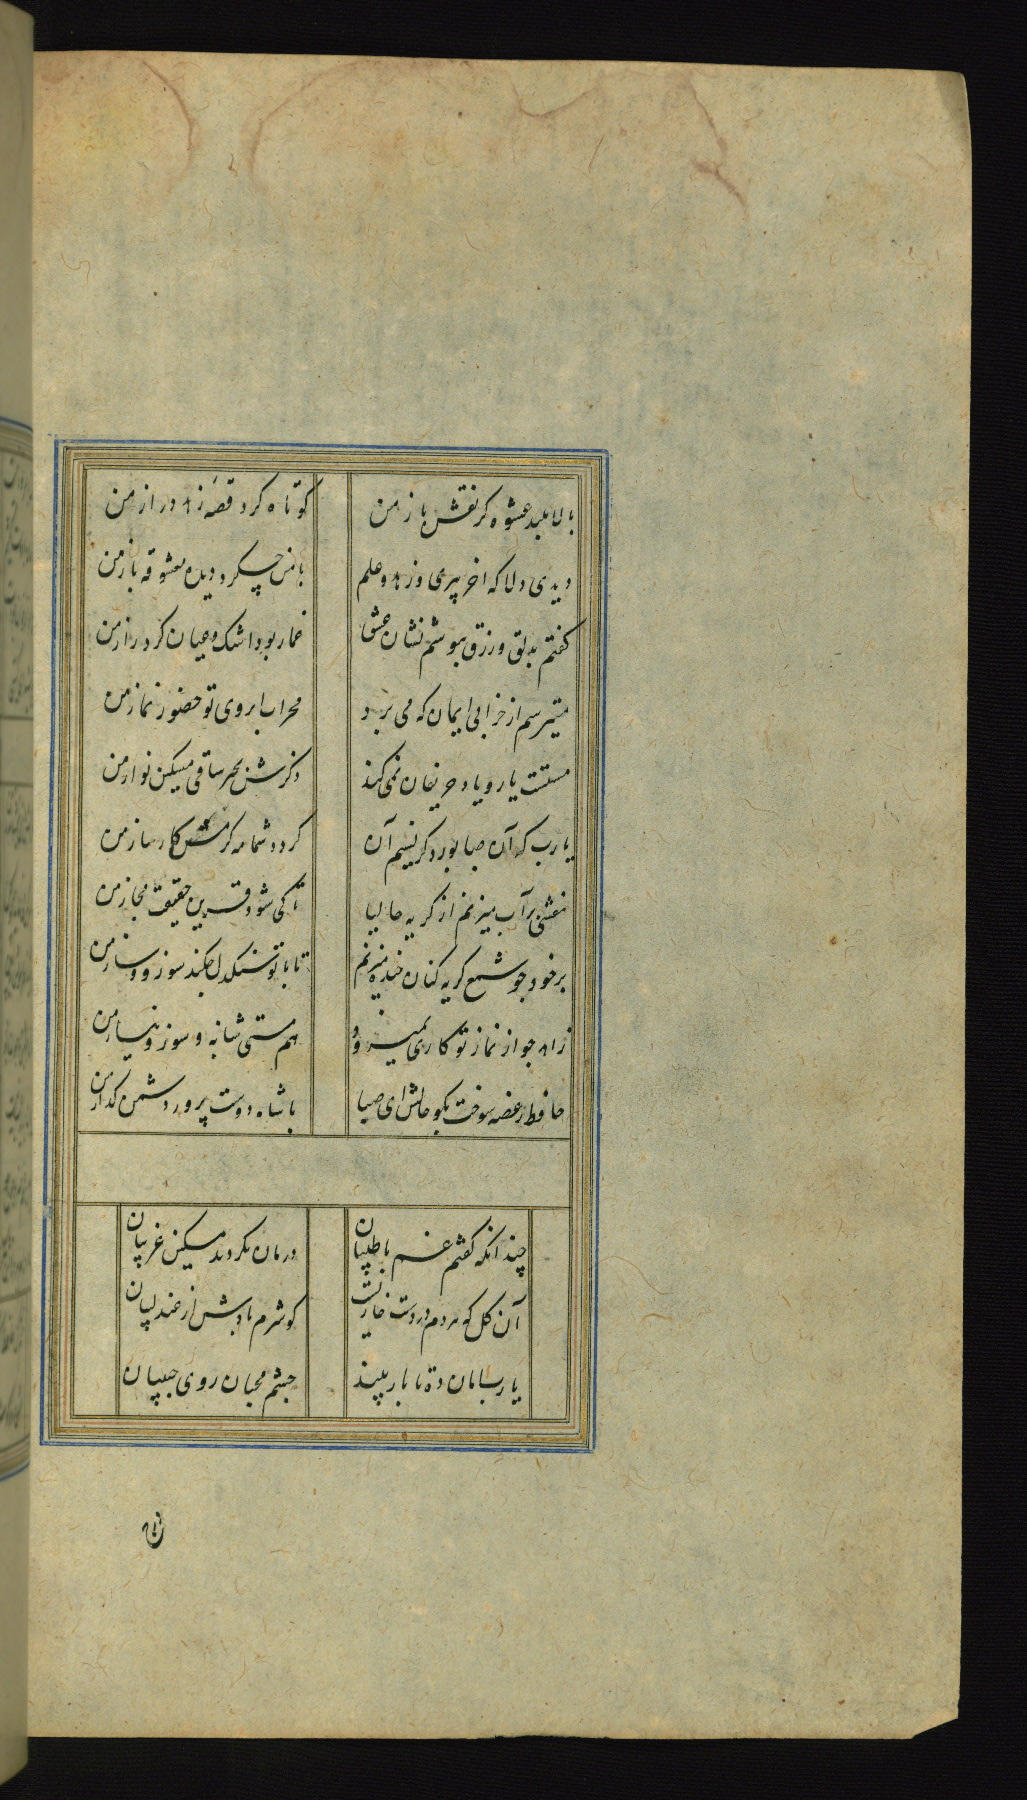 بالا بلند عشوه گر نقش باز من کوتاه کرد قصه زهد دراز من
دیدی دلا که اخر پیری و زهد و علم با من چه کرد دیده معشوقه باز من
گفتم بدلق و زرق بپوشم نشان عشق غماز بود اشک و عیان کرد راز من
میترسم از خرابی ایمان که می برد محراب ابروی تو حضور نماز من
مستست یار و یاد حریفان نمی کند ذکرش بخیر ساقی مسکین نواز من
یا رب که آن صبا بوزد کز نسیم آن گردد شمامه کرمش کارساز من
نقشی بر آب میزنم از گریه حالیا تا کی شود قرین حقیقت مجاز من
بر خود چو شمع گریه کنان خنده میزنم تا با تو سنگدل چکند سوز و ساز من
زاهد چو از نماز تو کاری نمیرود هم مستی شبانه و سوز و نیاز من
حافظ ز غصه سوخت بگو حالش ای صبا با شاه دوست پرور دشمن گداز من
چندانکه گفتم غم با طبیبان درمان نکردند مسکین غریبان
آن گل که هر دم در دست خاریست گو شرم بادش از عندلیبان
یا رب امان ده تا باز بیند چشم محبان روی حبیبان